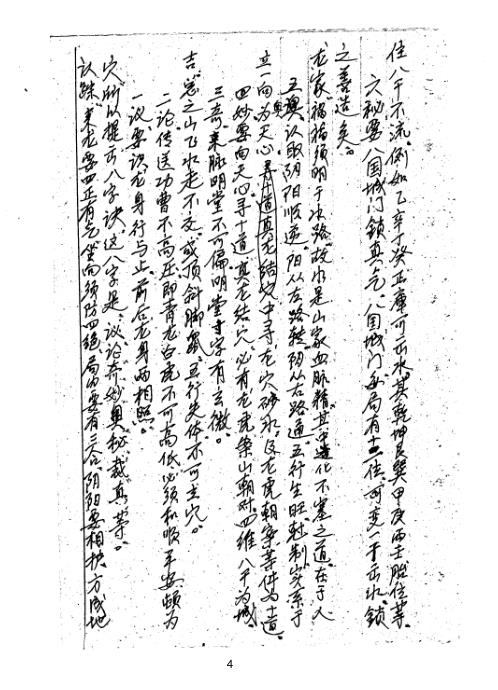 认踪,来龙要四正有气坐向须防四绝局内要有三合阴阳要相扶方成地
穴,所以提示八字诀,这八字是,议论奇妙奥秘裁真等。
一议要识龙身行与止,前后龙身两相照。
二论传送功曹不高压即青龙白虎不可高低必须和顺平安,颇为
吉,总之山飞水走不交,或顶斜脚窜,五行失体不可立穴。
三奇,来脉明堂不可偏明堂寸字有玄微。
四妙要向天心寻十道,真龙结穴必有龙虎案山朝对四维八干为城
其一向为天心寻十道真龙结穴中寻龙穴砂水及龙虎朝案等件为十道。
五奥,认取阴阳顺逆,阳从左路转阴从右路通五行生旺制实系于
龙家祸福须明于水路,故水是山家血脉精,其中造化不塞之道,在于人
之善造矣。
六秘要八国城门锁真气,八国城门每局有十二位,可变一干出水,锁
住八干不流,例如乙辛丁癸正库可出水其乾坤艮巽甲庚丙壬胎位等
4